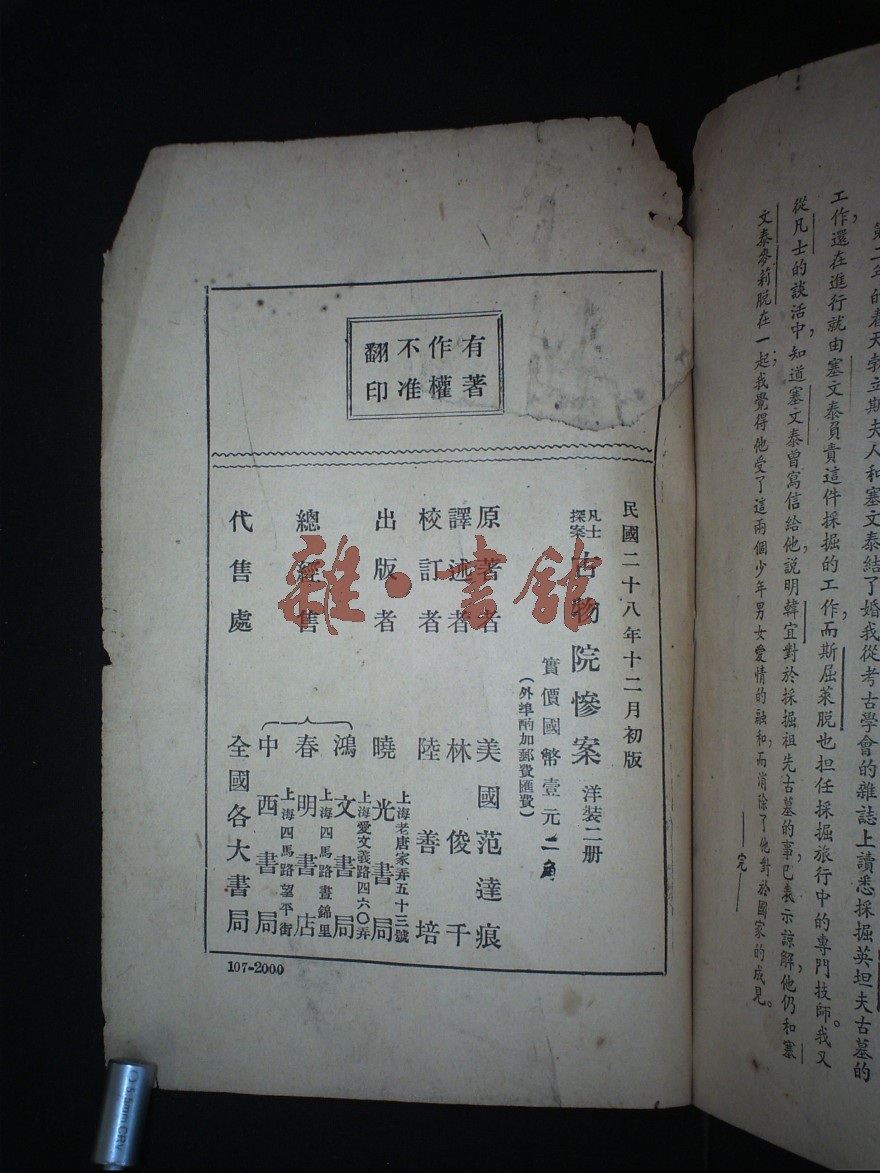 第二年的春天勃立斯夫人和塞文泰結了婚我從考古學會的雜誌上讀悉採掘英坦夫古墓的
工作,還在進行就由塞文泰負責這件採掘的工作,而斯屈萊脱也担任採掘旅行中的專門技師。我又
從凡士的談活中,知道塞文泰曾寫信給他,説明韓宜對於採掘祖先古墓的事,已表示諒解,他仍和塞
文泰麥莉脱在一起;我覺得他受了這兩個少年男女愛情的融和,而消除了他對於國家的成見。
——完——
有著
作權
不准
翻印
民國二十八年十二月初版
凡士
探案
古物院慘案 洋裝二册
實價國幣壹元二角
(外埠酌加郵費匯費)
原著者 美國范達痕
譯述者 林俊千
校訂者 陸善培
上海老唐家弄五十三號
出版者 曉光書局
上海愛文義路四六〇弄
總經售 鴻文書局
上海四馬路畫錦里
春明書店
上海四馬路望平街
中西書局
代售處 全國各大書局
107-2000
雜·書館